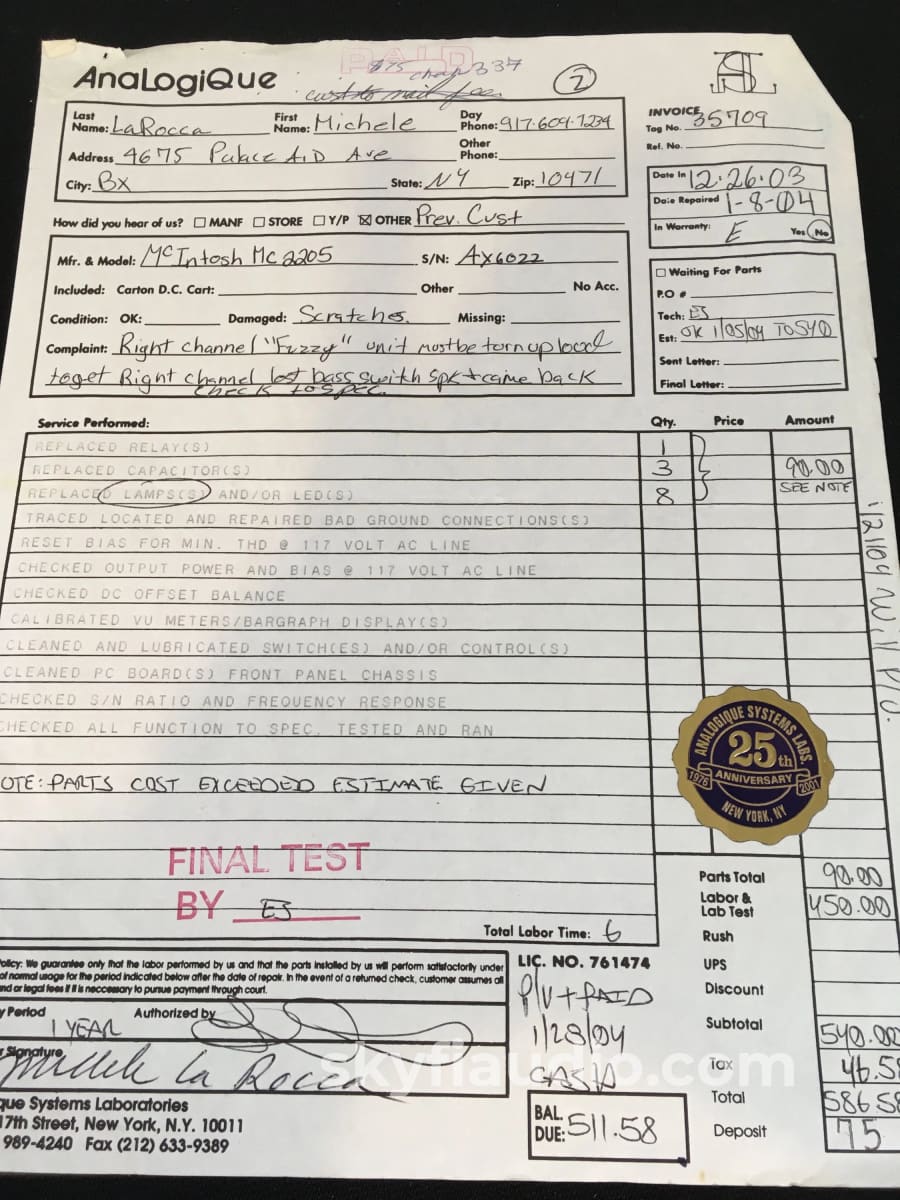 PAID
$75 check 337
AnaLogiQue
cust to mail fee.
2
INVOICE
Tag No. 35709
Ref. No.
Last Name: LaRocca First Name: Michele Day Phone: 917.609.7234
Other Phone:
Address 4675 Palace Ave
City: Bx State: NY Zip: 10471
Date In 12.26.03
Date Repaired 1-8-04
In Warranty: E Yes No
How did you hear of us? MANF STORE Y/P OTHER Prev. Cust
Mfr. & Model: McIntosh Mc2205 S/N: AX6022
Included: Carton D.C. Cart: Other No Acc.
Condition: OK: Damaged: Scratches. Missing:
Complaint: Right channel "Fuzzy" unit must be turn up loud
to get Right channel lost bass swith spk + came back
check to spec.
Waiting For Parts
P.O #
Tech: ES
Est: OK 1/05/04 TO 540
Sent Letter:
Final Letter:
Service Performed: Qty. Price Amount
REPLACED RELAY(S) 1
REPLACED CAPACITOR(S) 3 90.00
REPLACED LAMPS(S) AND/OR LED(S) 8 SEE NOTE
TRACED LOCATED AND REPAIRED BAD GROUND CONNECTIONS(S)
RESET BIAS FOR MIN. THD @ 117 VOLT AC LINE
CHECKED OUTPUT POWER AND BIAS @ 117 VOLT AC LINE
CHECKED DC OFFSET BALANCE
CALIBRATED VU METERS/BARGRAPH DISPLAY(S)
CLEANED AND LUBRICATED SWITCH(ES) AND/OR CONTROL(S)
CLEANED PC BOARD(S) FRONT PANEL CHASSIS
CHECKED S/N RATIO AND FREQUENCY RESPONSE
CHECKED ALL FUNCTION TO SPEC. TESTED AND RAN
1/21/04 Will P/U.
OTE: PARTS COST EXCEEDED ESTIMATE GIVEN
ANALOGIQUE SYSTEMS LABS.
25th
1976 ANNIVERSARY 2001
NEW YORK, NY
FINAL TEST
BY ES
Total Labor Time: 6
Parts Total 90.00
Labor & Lab Test 450.00
Rush
UPS
Discount
Subtotal 540.00
Tax 46.58
Total 586.58
Deposit 75
olicy: We guarantee only that the labor performed by us and that the parts installed by us will perform satisfactorily under
of normal usage for the period indicated below after the date of repair. In the event of a returned check, customer assumes all
nd or legal fees if it is neccessary to pursue payment through court.
y Period 1 YEAR Authorized by
Signature Michele La Rocca
LIC. NO. 761474
P/U + PAID
1/28/04
CASH
BAL. DUE: 511.58
skyfiaudio.com
que Systems Laboratories
17th Street, New York, N.Y. 10011
989-4240 Fax (212) 633-9389